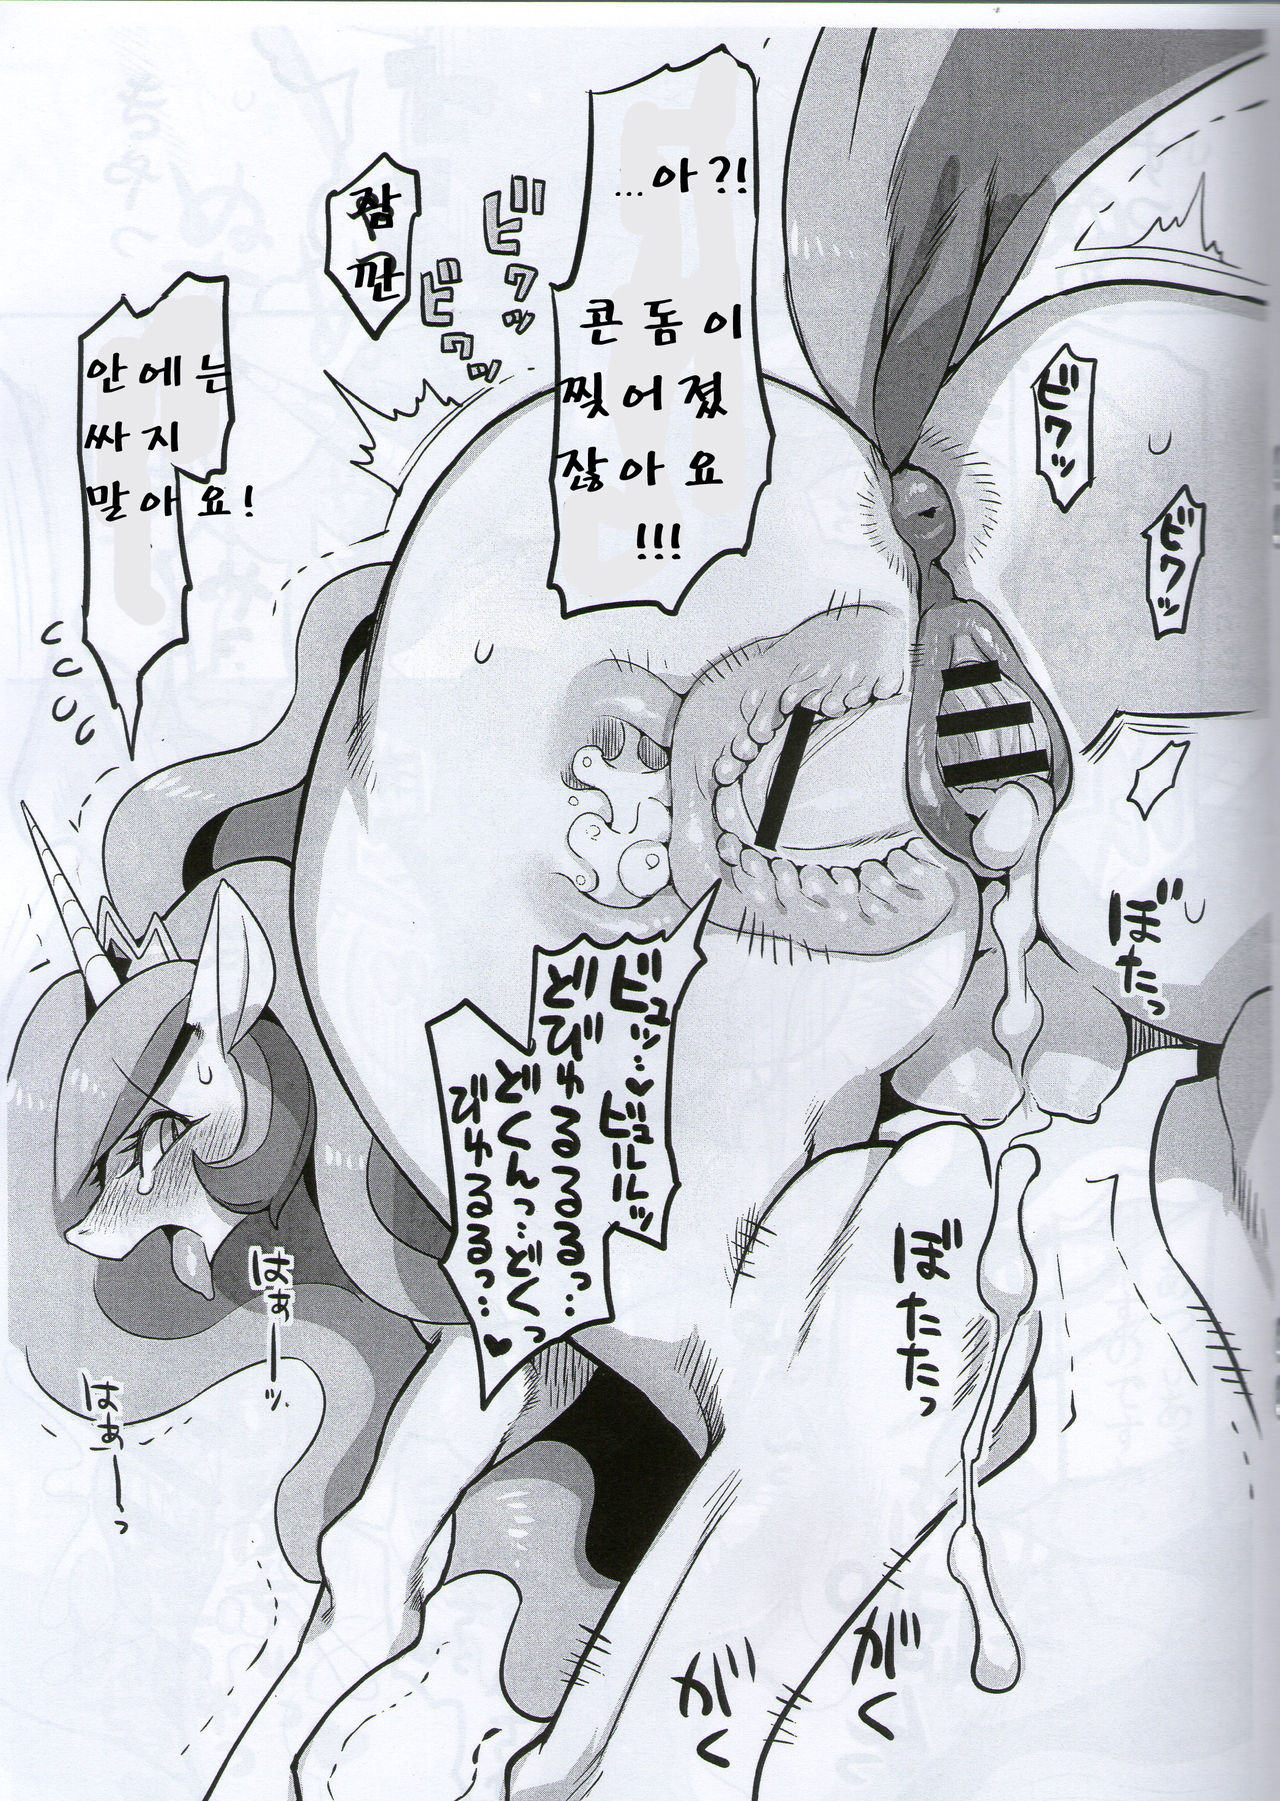 …아?!
콘돔이
찢어졌
잖아요
!!!
잠
깐
안에는
싸지
말아요!
ビクッ
ビクッ
ビクッ
ビクッ
ビュッ…♥ビュルルルッ
どびゅるるるるっ…
どくんっ…どくっ
びゅるるるっ…♥
ぼたっ
ぼたたっ
はぁーッ
はぁーっ
がく
がく